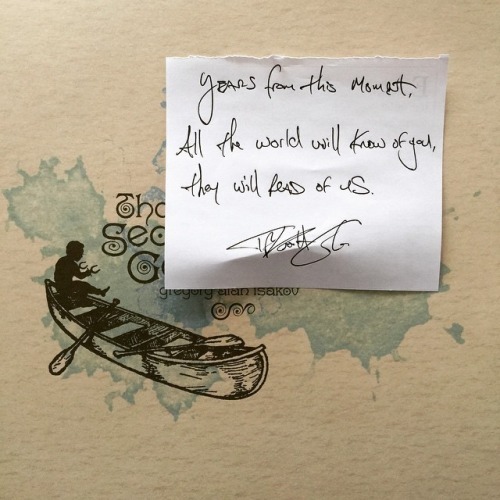 years from this moment,
All the world will know of you,
they will read of us.
Tha
Sec
Ge
gregory alan isakov